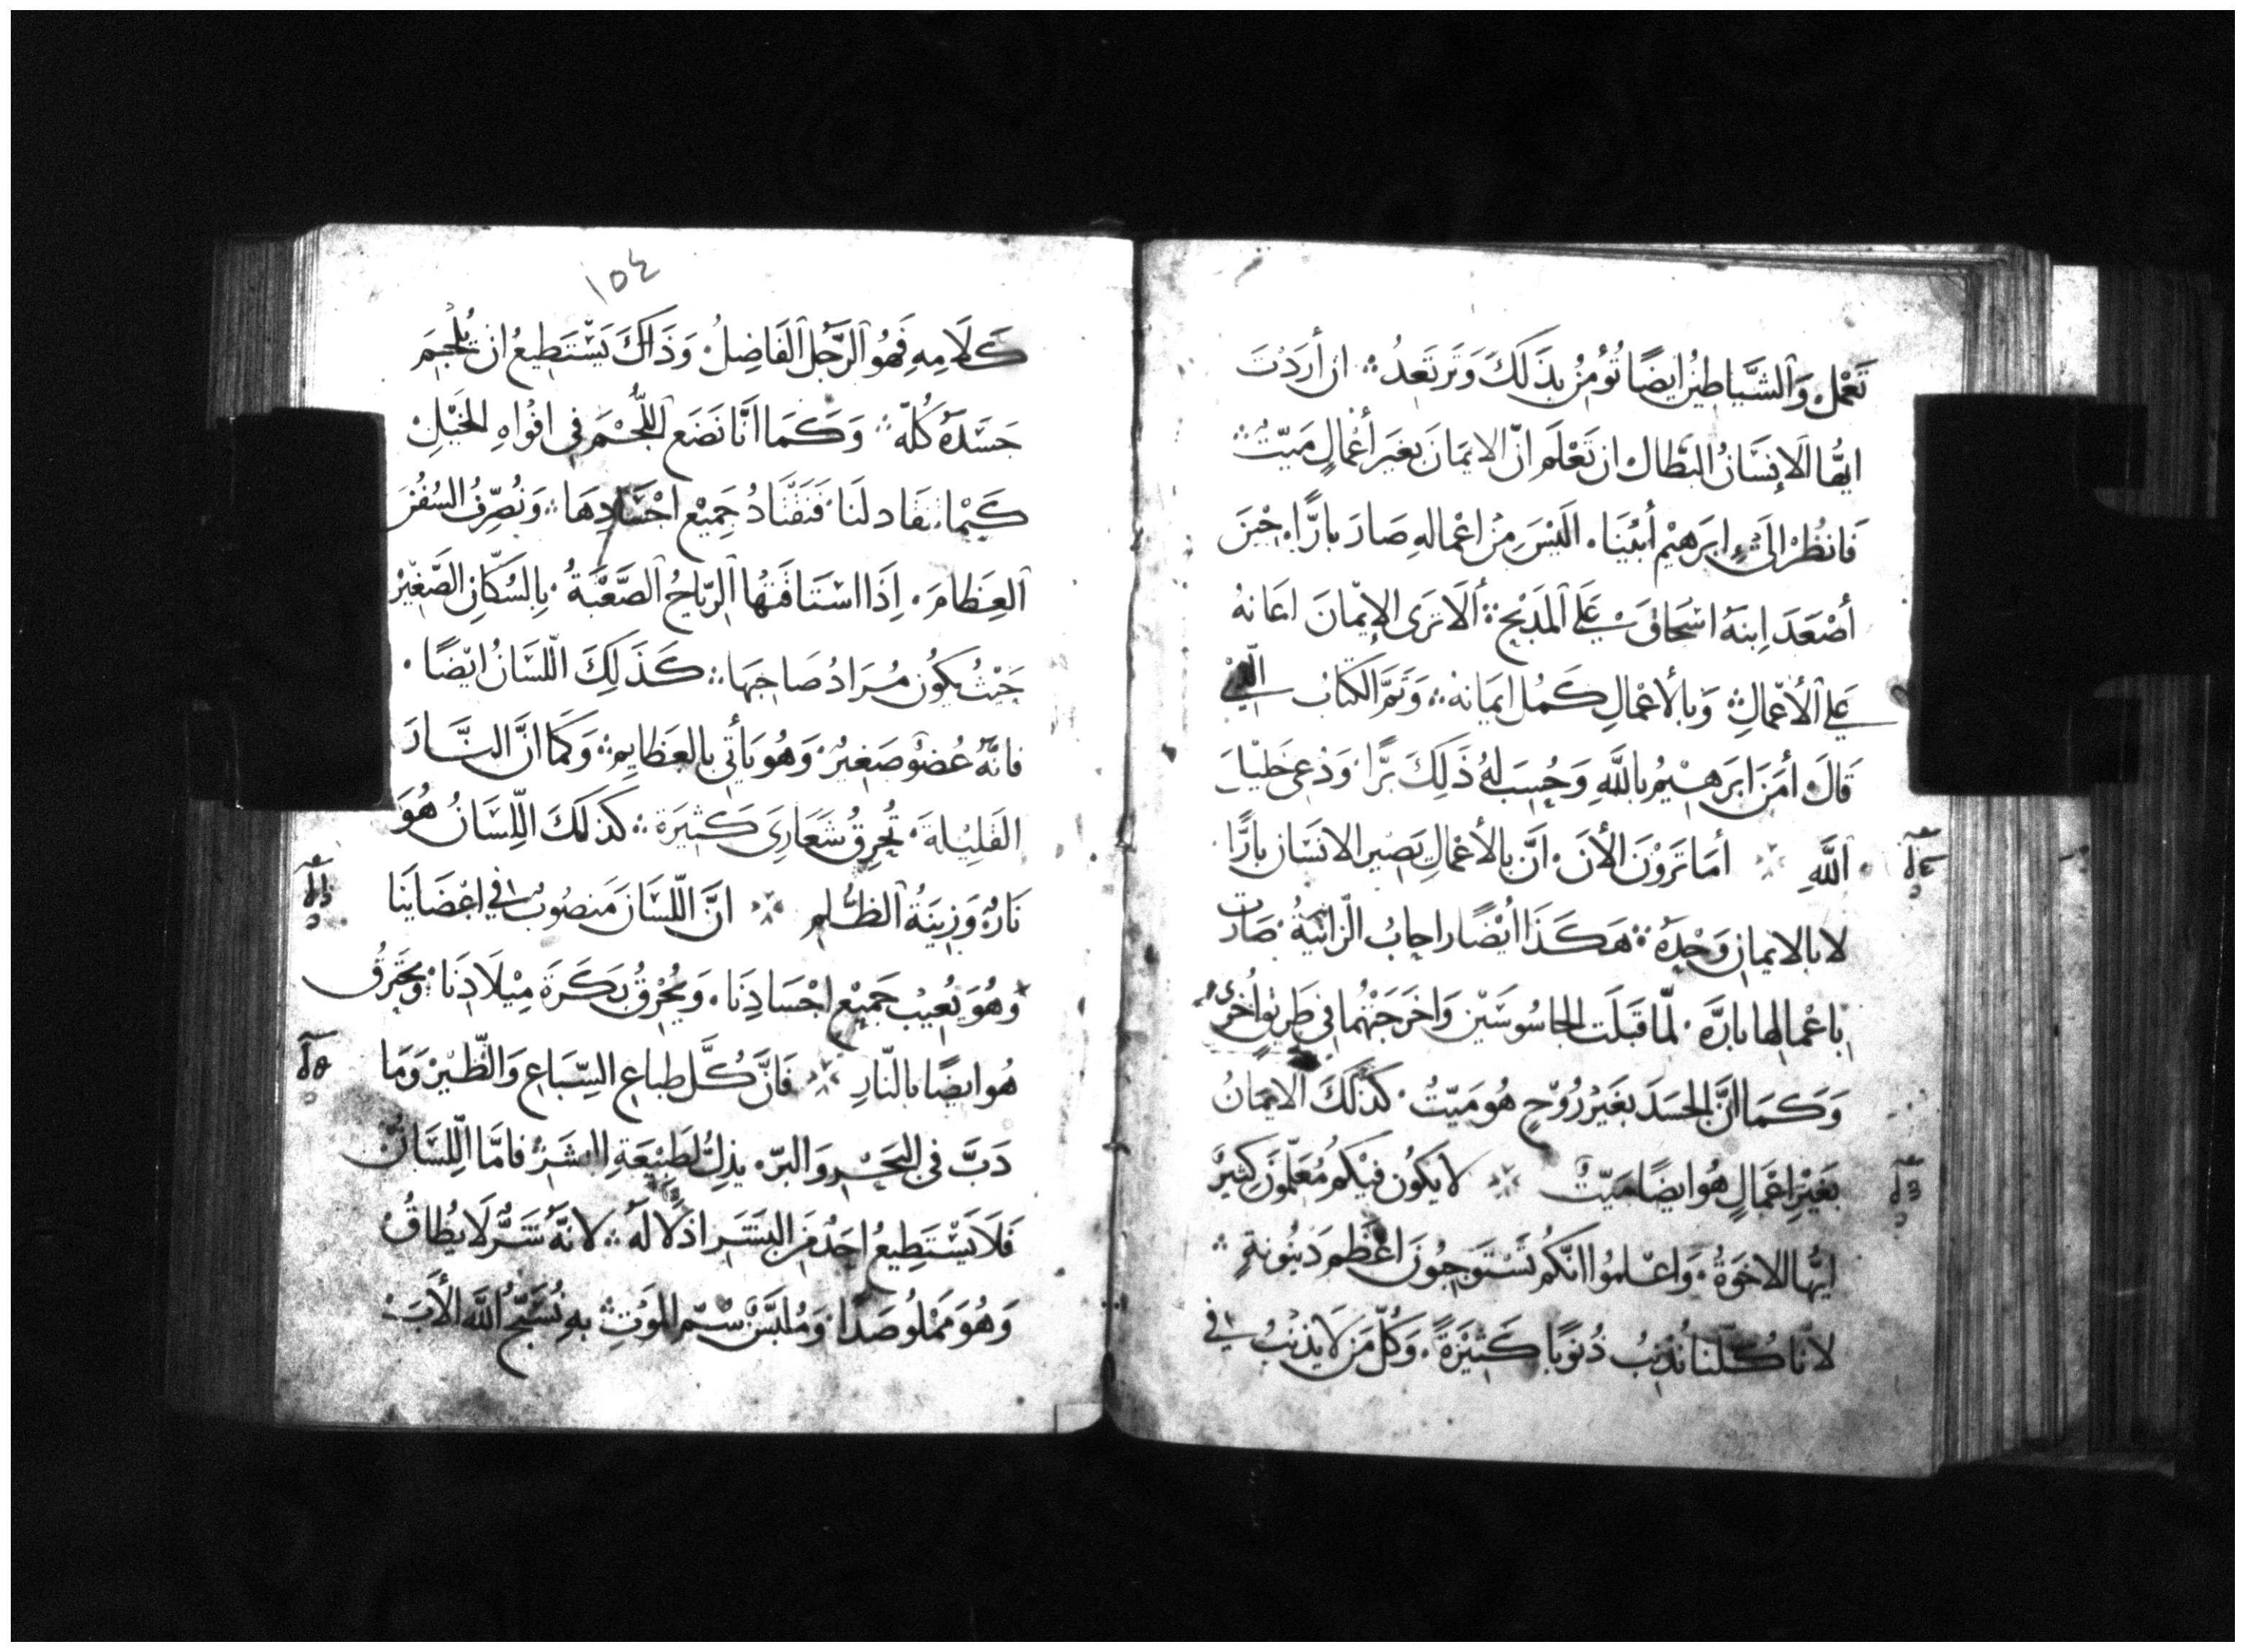 تَعْمَل وَالشَّيَاطِينُ ايضًا تُؤمِنُ بِذَلكَ وَتَرتَعِدُ ان أرَدْتَ
ايُّها الاِنسَانُ البَطَّال ان تَعْلَم انّ الايمَانَ بغَيَر أعْمَالٍ مَيّتٌ
فَانظُرْ الىَ ابرَهِيْم أبيْنَا. الَيْسَ مِنْ اعْمالهِ صَارَ بارًّا. حِيْنَ
أصْعَدَ اِبنهُ اسْحَاقَ عَلي الَمذبْحِ ألَا تَرَى الإيْمانَ اعَانهُ
عَلي الأعْمالِ وَبالأعْمالِ كَمُل ايمَانهُ وَتَمَّ الكتَابُ الَّذيْ
قَالَ أمَنَ ابرَهِيْمُ باللَّهِ وَحُسِبَ لهُ ذَلِكَ بَرًّا وَدُعِىَ خَليْلَ
اللَّهِ أمَا تَرَوْنَ الأنَ. انَّ بالأعْمَالِ يَصِير الانسَان بارًّا ٢٤
لا بالايمانِ وَحْدهُ هَكَذَا ايْضًا راحابُ الزَانيَةُ صَارَت
باعْمالِها بارَّه. لمّا قَبلَت الجَاسُوسَيْن وَاخرَجَتْهُما في طَرِيقٍ اُخرَى
وَكَمَا انَّ الجسَدَ بغَيْر رُوْحٍ هُو مَيّتٌ كَذلكَ الايمَانُ
بغَيْرِ اعْمَالٍ هُو ايضًا مَيّتٌ لا يَكُون فيْكُم مُعَلّموْنَ كَثِيْر
ايُّها الاخوَةُ. وَاعْلمُوا انّكُم تَسْتَوجِبُونَ اعْظَم دَيْنُونةٍ
لانّا كُلّنا نُذنِبُ ذُنوْبًا كَثيْرَةً. وَكُلّ مَن لا يُذنِبُ في
١٥٤
كَلَامِهِ فَهُو الرَّجُل الفَاضِلُ وَذَاكَ يَسْتَطِيعُ ان يُلْجِمَ
جَسَدَهُ كُلّهُ وَكَمَا انَّا نَضَع اللُّجُمَ فِي افْوَاهِ الخَيْلِ
كَيْما تنقَاد لنَا فَنقْتَادُ جَمِيْع اجْسَادِهَا وَنُصَرِّفُ السُفُنَ
العِظَامَ. اِذَا اسْتَاقَتها الرّيَاحُ الصَّعْبَةُ. بِالسُكَّانِ الصَّغِيْر
حَيْثُ يَكُون مُرَادُ صَاحِبهَا كَذَلِكَ اللّسَانُ ايْضًا.
فانَّهُ عُضوٌ صَغيرٌ وَهُو يَأتِي بالعَظايِمِ وَكمَا انَّ النَّارَ
القَليْلة تُحرِقُ شَعَارِيَ كَثيرَة كَذلكَ اللِّسَانُ هُوَ
نَارٌ وَزِينَةُ الظُّلم انَّ اللّسَانَ مَنصُوبٌ فِي اعْضَاينَا
وَهُو يُعِيْب جَمِيْع اجْسَادِنَا. وَيُحْرِقُ بَكَرَةَ مِيْلَادِنَا وَيَحترِقُ
هُو ايضًا بالنّارِ فَانَّ كُلّ طِبَاعِ السِّبَاعِ وَالطَّيْرِ وَمَا ٥٥
دَبَّ فِي البَحْر وَالبرّ. يذِلُّ لطَبِيْعَةِ البشَرِ فامَّا اللِّسَانُ
فَلَا يَسْتَطِيعُ احَدٌ مِن البشَر اذلالهُ لانّهُ شَرٌّ لَا يُطَاقُ
وَهُو مَمْلُو صَدَا وَمُلبَّسٌ سَمّ الموْتِ بهِ نُسَبّحُ اللَّه الأَبَ